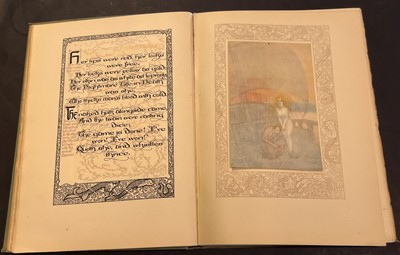 Her lips were red, her looks
were free,
Her locks were yellow as gold:
Her skin was as white as leprosy,
The Nightmare Life-in-Death
was she,
Who thicks man's blood with cold.
The naked hulk alongside came,
And the twain were casting
dice;
"The game is done! I've
won, I've won!"
Quoth she, and whistles
thrice.